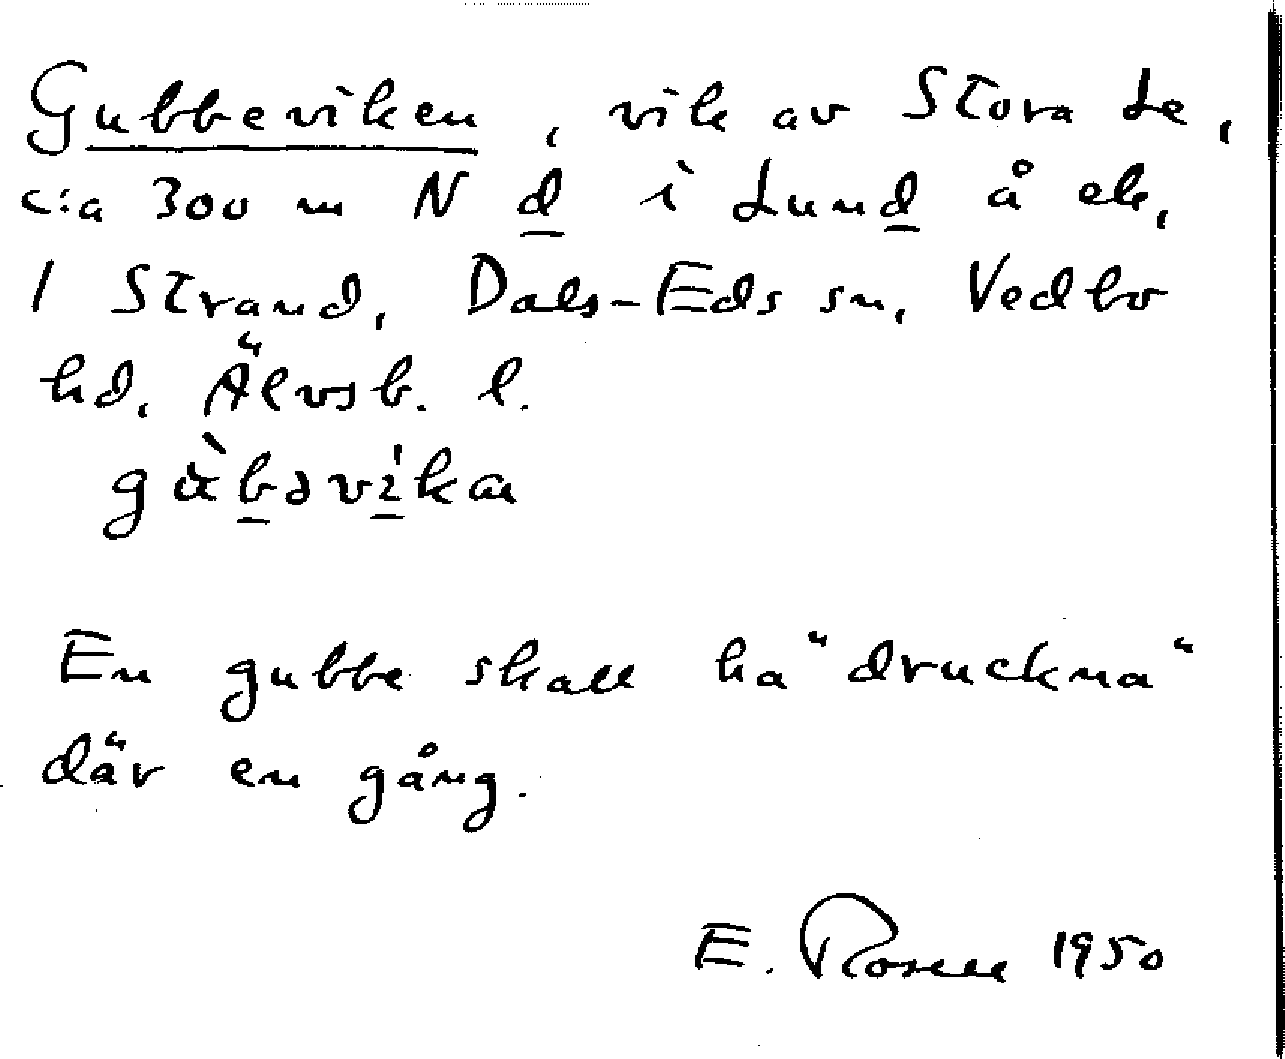 Gubbeviken, vik av Stora Le,
c:a 300 m N d i Lund å ek,
1 Strand, Dals-Eds sn, Vedbo
hd, Älvsb. l.
En gubbe skall ha "druckna"
där en gång.
E. Rosell 1950